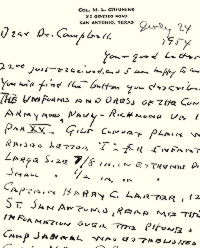 COL. M. L. CRIMMINS
312 GENESEO ROAD
SAN ANTONIO, TEXAS
July 24
1954
Dear Dr. Campbell
Your good letter
I have just received, and I am happy to
You will find the button you described
THE UNIFORMS AND DRESS OF THE CON
ARMY AND NAVY - RICHMOND VA
PAR XX. - GILT CONVEX PLAIN W
LARGE SIZE 7/8 IN. IN EXTERNAL D
SMALL " 1/2 IN. IN "
CAPTAIN HARRY C. LARTER, 12
ST. SAN ANTONIO, READ ME THIS
INFORMATION OVER THE PHONE.
CAMP SABINAL WAS ESTABLISHED